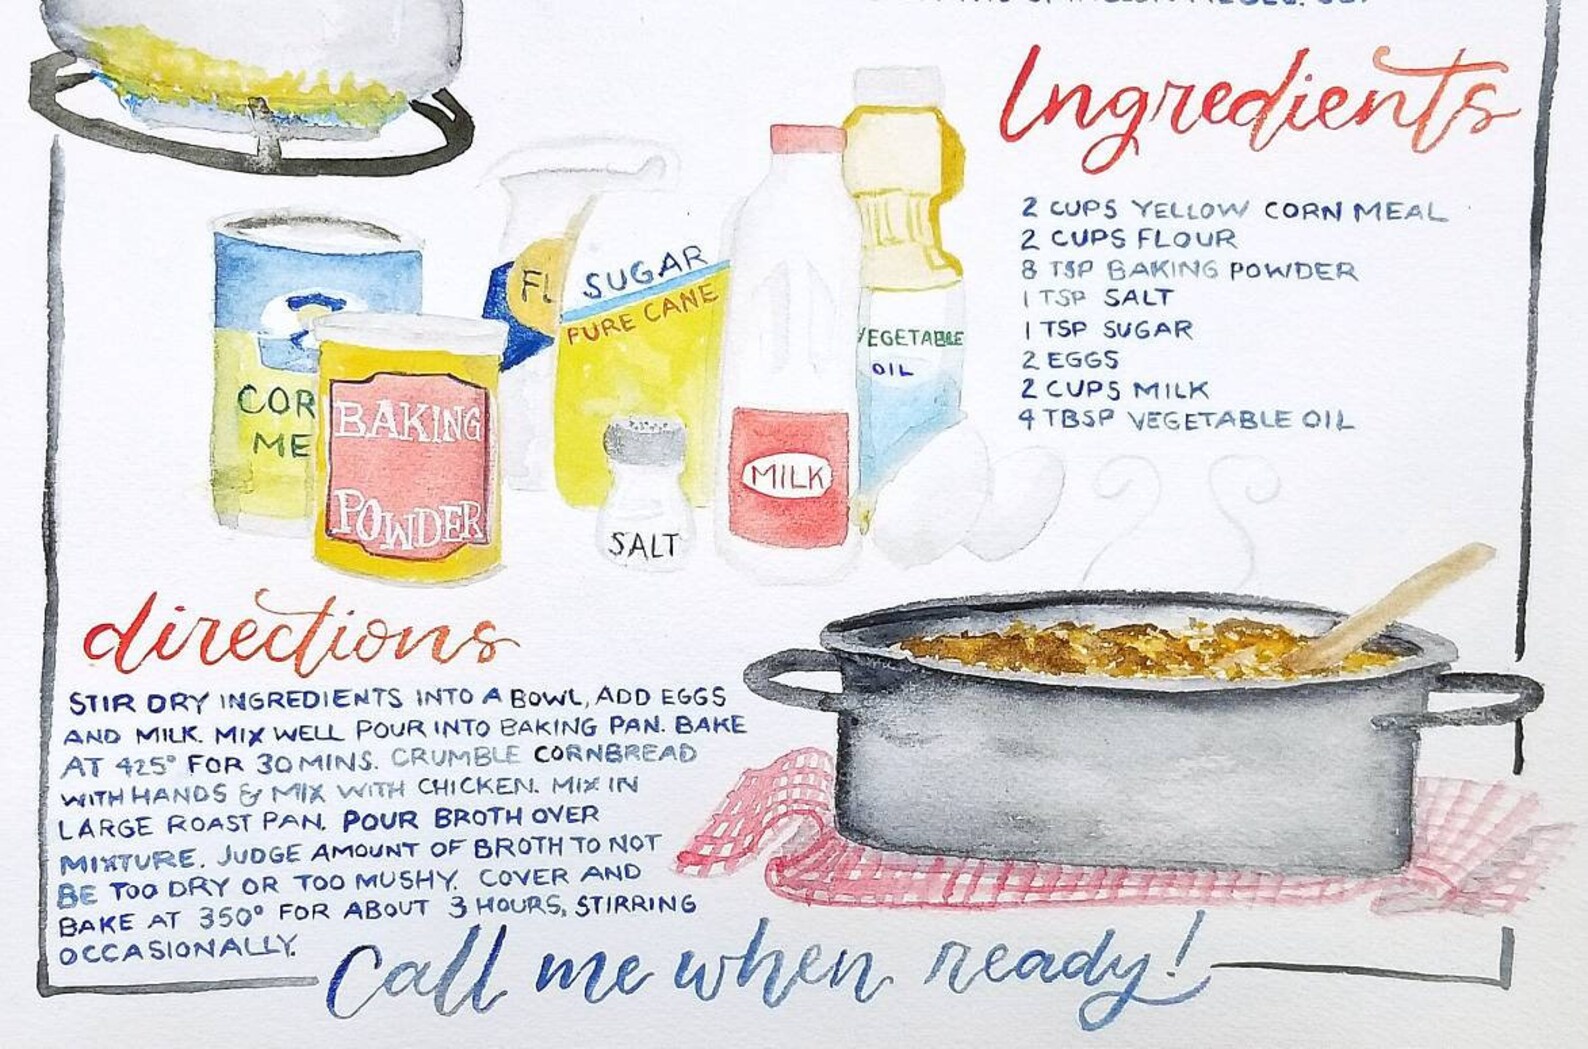 Ingredients
2 CUPS YELLOW CORN MEAL
2 CUPS FLOUR
8 TSP BAKING POWDER
1 TSP SALT
1 TSP SUGAR
2 EGGS
2 CUPS MILK
4 TBSP VEGETABLE OIL
COR
ME
BAKING
POWDER
FL
SUGAR
PURE CANE
SALT
MILK
VEGETABLE
OIL
directions
STIR DRY INGREDIENTS INTO A BOWL, ADD EGGS
AND MILK. MIX WELL POUR INTO BAKING PAN. BAKE
AT 425° FOR 30 MINS. CRUMBLE CORNBREAD
WITH HANDS & MIX WITH CHICKEN. MIX IN
LARGE ROAST PAN. POUR BROTH OVER
MIXTURE. JUDGE AMOUNT OF BROTH TO NOT
BE TOO DRY OR TOO MUSHY. COVER AND
BAKE AT 350° FOR ABOUT 3 HOURS, STIRRING
OCCASIONALLY.
Call me when ready!